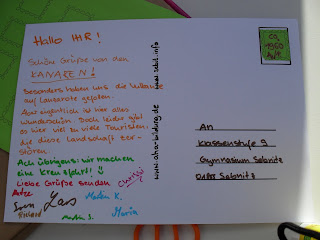 Hallo IHR!
Schöne Grüße von den
KANAREN!
Besonders haben uns die Vulkane
auf Lanzarote gefallen.
Aber eigentlich ist hier alles
wunderschön. Doch leider gibt
es hier viel zu viele Touristen,
die diese Landschaft zer-
stören.
Ach übrigens: wir machen
eine Kreuzfahrt!
Liebe Grüße senden
Christin
Sven
Lars
Martin K.
Richard
Maria
www.ahorbildung.de
CA.
1960
An
Klassenstufe 9
Gymnasium Sebnitz
01855 Sebnitz